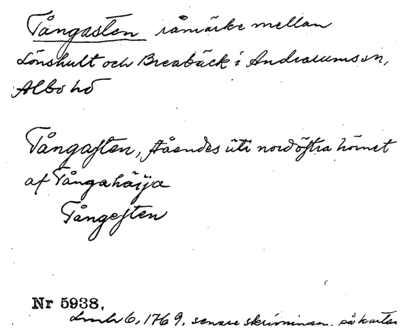 Tångasten råmärke mellan
Lönshult och Breabäck i Andrarums sn,
Albo hd
Tångasten, ståendes uti nordöstra hörnet
af Tångahäija
Tångesten
Nr 5938.
6, 1769, senare skrivningen på kartan